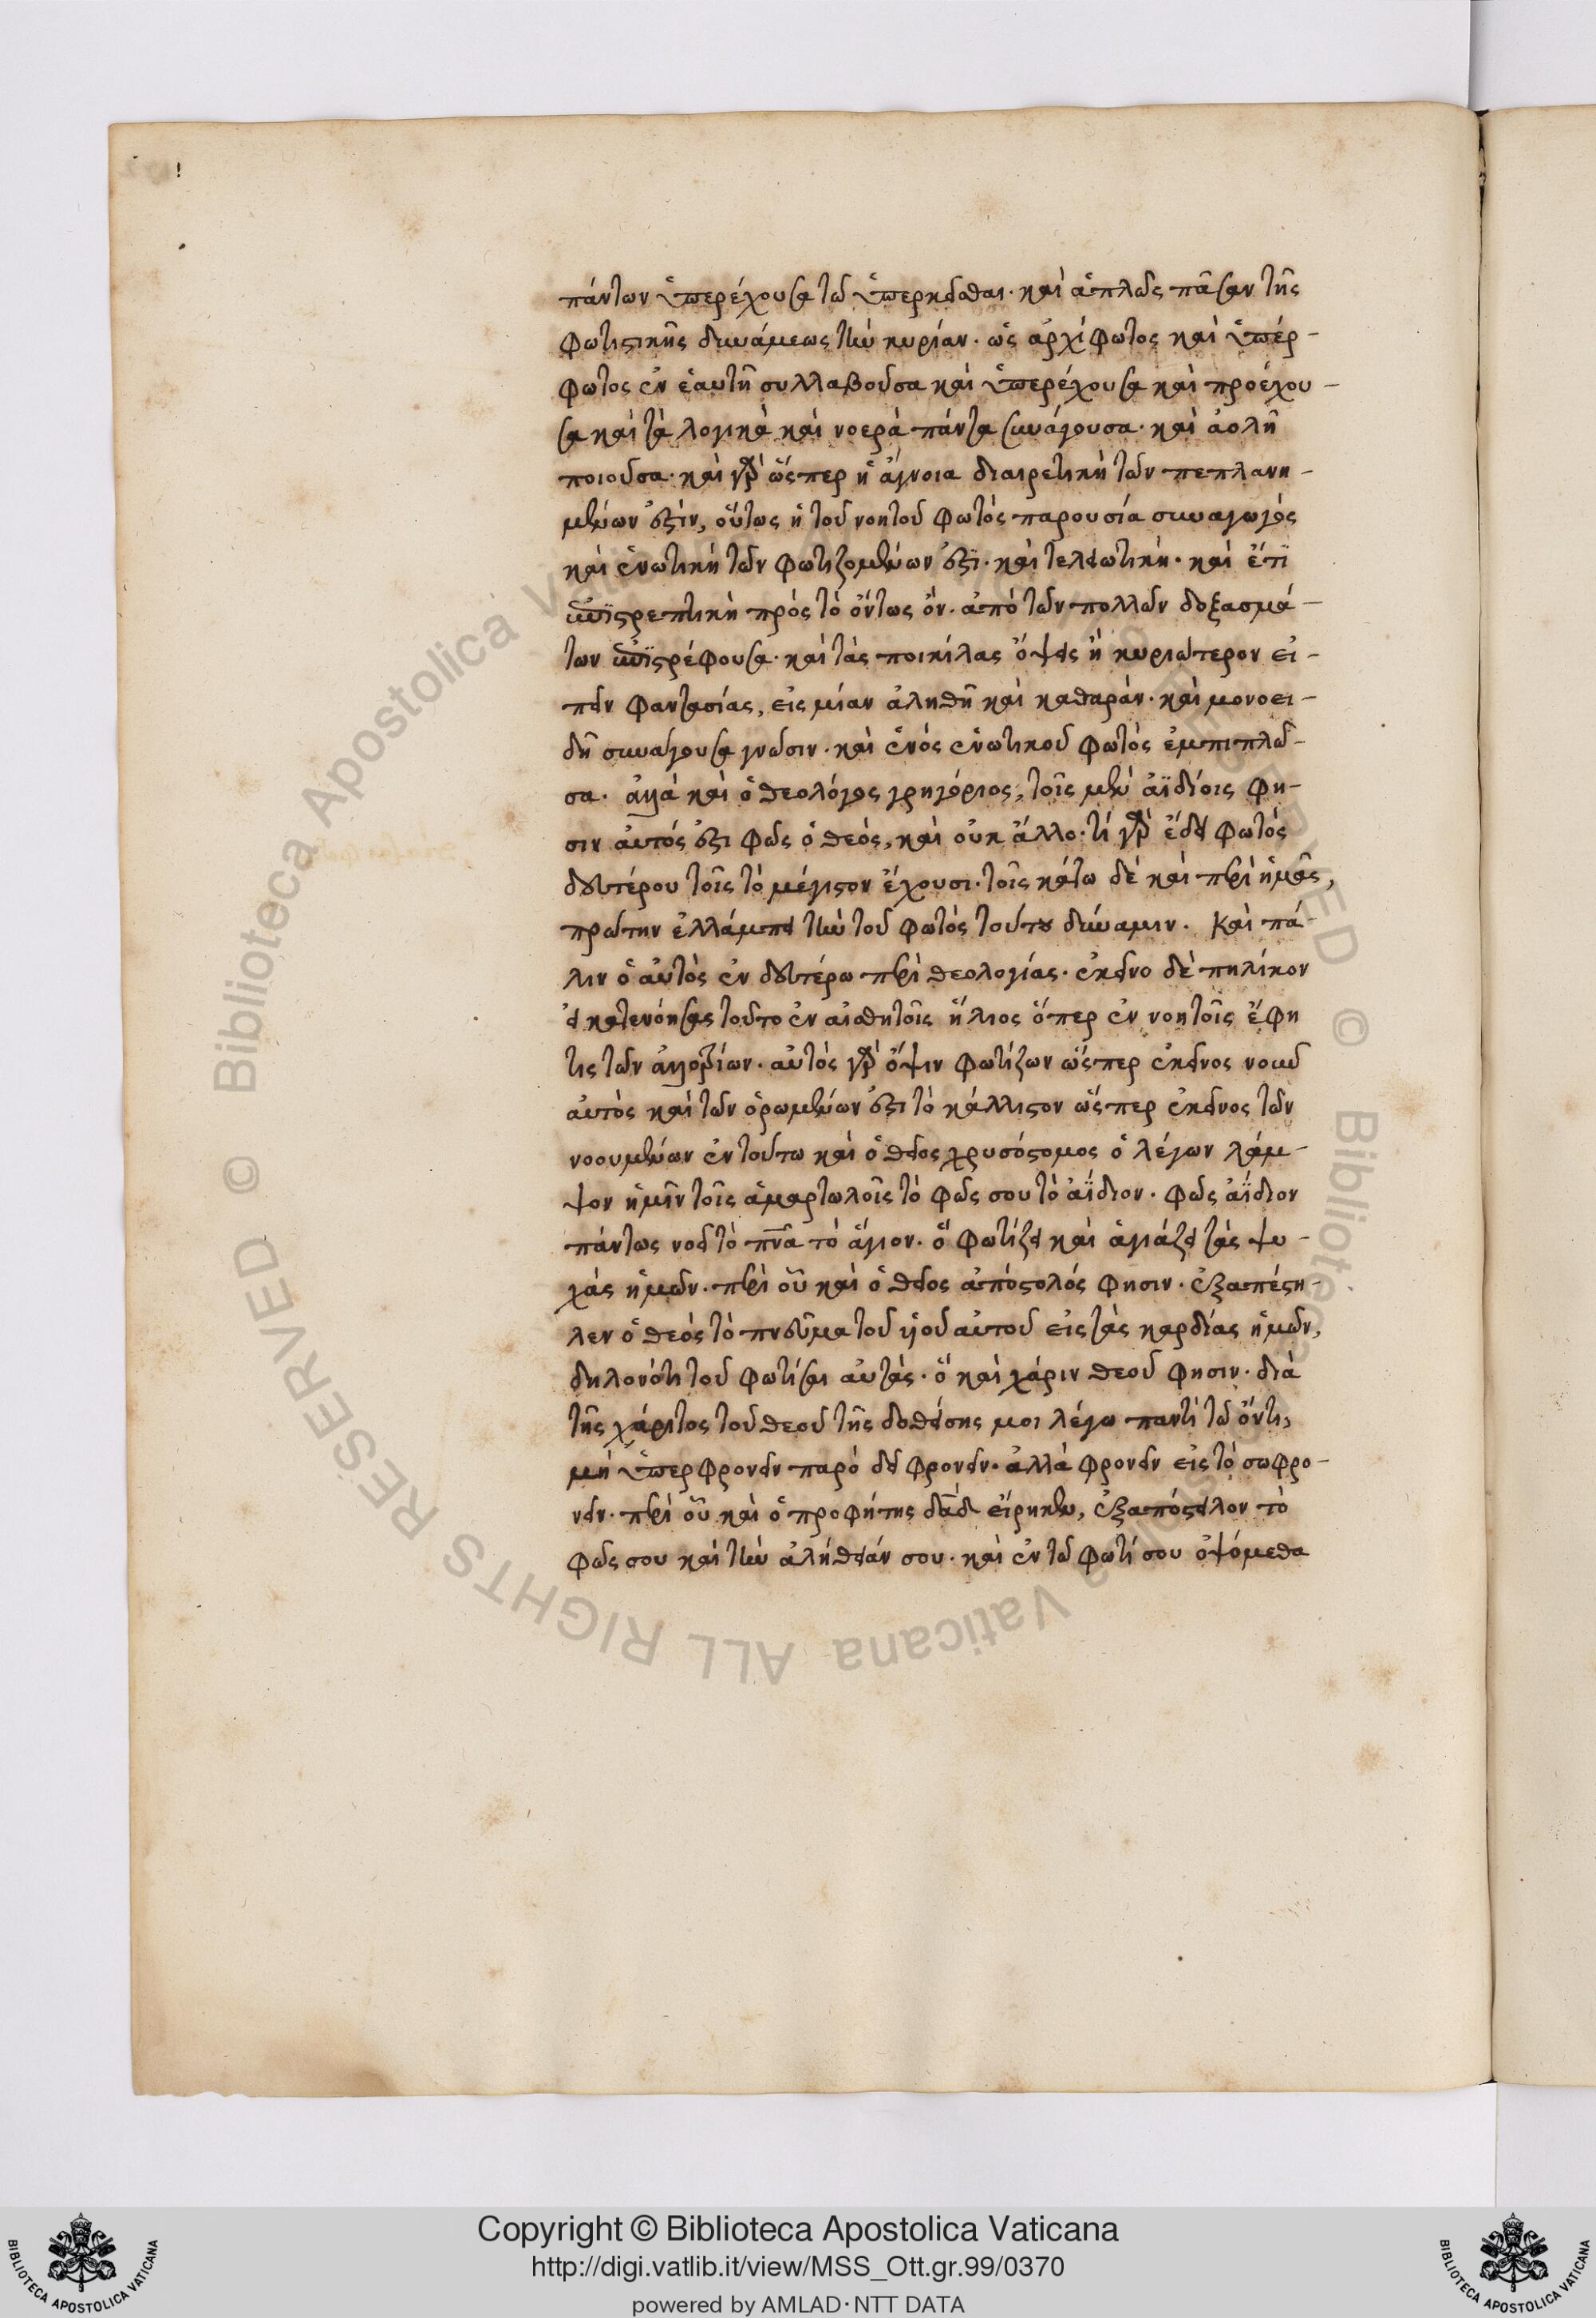 πάντων ὑπερέχουσα τῶ ὑπερκεῖσθαι· καὶ ἁπλῶς πᾶσαν τῆς
φωτιστικῆς δυνάμεως τὴν κυρίαν· ὡς ἀρχίφωτος καὶ ὑπέρ-
φωτος ἐν ἑαυτῆ συλλαβοῦσα καὶ ὑπερέχουσα καὶ προέχου-
σα καὶ τὰ λογικὰ καὶ νοερὰ πάντα συνάγουσα· καὶ ἀολῆ
ποιοῦσα· καὶ γὰρ ὥσπερ ἡ ἄγνοια διαιρετικὴ τῶν πεπλανη-
μένων ἐστὶν, οὕτως ἡ τοῦ νοητοῦ φωτὸς παρουσία συναγωγὸς
καὶ ἑνωτικὴ τῶν φωτιζομένων ἐστϊ· καὶ τελειωτικὴ· καὶ ἔτϊ
ἐπϊστρεπτικὴ πρὸς τὸ ὄντως ὂν· ἀπὸ τῶν πολλῶν δοξασμά-
των ἐπϊστρέφουσα· καὶ τὰς ποικίλας ὄψεις ἢ κυριώτερον εἰ-
πεῖν φαντασίας, εἰς μίαν ἀληθῆ καὶ καθαρὰν· καὶ μονοει-
δῆ συναγουσα γνῶσιν· καὶ ἑνὸς ἑνωτικοῦ φωτὸς ἐμπιπλῶ-
σα· ἀλλὰ καὶ ὁ θεολόγος γρηγόριος, τοῖς μὲν ἀϊδίοις φη-
σιν αὐτός ἐστι φῶς ὁ θεὸς, καὶ οὐκ ἄλλο· τί γὰρ ἔδει φωτὸς
δευτέρου τοῖς τὸ μέγιστον ἔχουσι· τοῖς κάτω δὲ καὶ περὶ ἡμᾶς,
πρώτην ἐλλάμπει τὴν τοῦ φωτὸς τούτου δύναμιν. Καὶ πά-
λιν ὁ αὐτὸς ἐν δευτέρω περὶ θεολογίας· ἐκεῖνο δὲ πηλίκον
εἰ κατενόησας τοῦτο ἐν αἰσθητοῖς ἥλιος ὅπερ ἐν νοητοῖς ἔφη
τις τῶν ἀλλοτρίων· αὐτὸς γὰρ ὄψιν φωτίζων ὥσπερ ἐκεῖνος νοῦν
αὐτὸς καὶ τῶν ὁρωμένων ἐστι τὸ κάλλιστον ὥσπερ ἐκεῖνος τῶν
νοουμένων ἐν τούτω καὶ ὁ θεῖος χρυσόστομος ὁ λέγων λάμ-
ψον ἡμῖν τοῖς ἁμαρτωλοῖς τὸ φῶς σου τὸ ἀΐδιον· φῶς ἀΐδιον
πάντως νοεῖ τὸ πνᾶ τὸ ἅγιον· ὃ φωτίζει καὶ ἁγιάζει τὰς ψυ-
χὰς ἡμῶν· περὶ οὗ καὶ ὁ θεῖος ἀπόστολός φησιν· ἐξαπέστη-
λεν ὁ θεὸς τὸ πνεῦμα τοῦ υἱοῦ αὐτοῦ εἰς τὰς καρδίας ἡμῶν,
δηλονότι τοῦ φωτίσαι αὐτὰς· ὃ καὶ χάριν θεοῦ φησιν· διὰ
τῆς χάριτος τοῦ θεοῦ τῆς δοθείσης μοι λέγω παντὶ τῶ ὄντι,
μὴ ὑπερφρονεῖν παρὸ δεῖ φρονεῖν· ἀλλὰ φρονεῖν εἰς τὸ σωφρο-
νεῖν· περὶ οὗ καὶ ὁ προφήτης δᾱδ εἴρηκεν, ἐξαπόστειλον τὸ
φῶς σου καὶ τὴν ἀλήθειάν σου· καὶ ἐν τῶ φωτί σου ὀψόμεθα
Copyright © Biblioteca Apostolica Vaticana
http://digi.vatlib.it/view/MSS_Ott.gr.99/0370
powered by AMLAD·NTT DATA
BIBLIOTECA APOSTOLICA VATICANA
BIBLIOTECA APOSTOLICA VATICANA
© Biblioteca Apostolica Vaticana ALL RIGHTS RESERVED